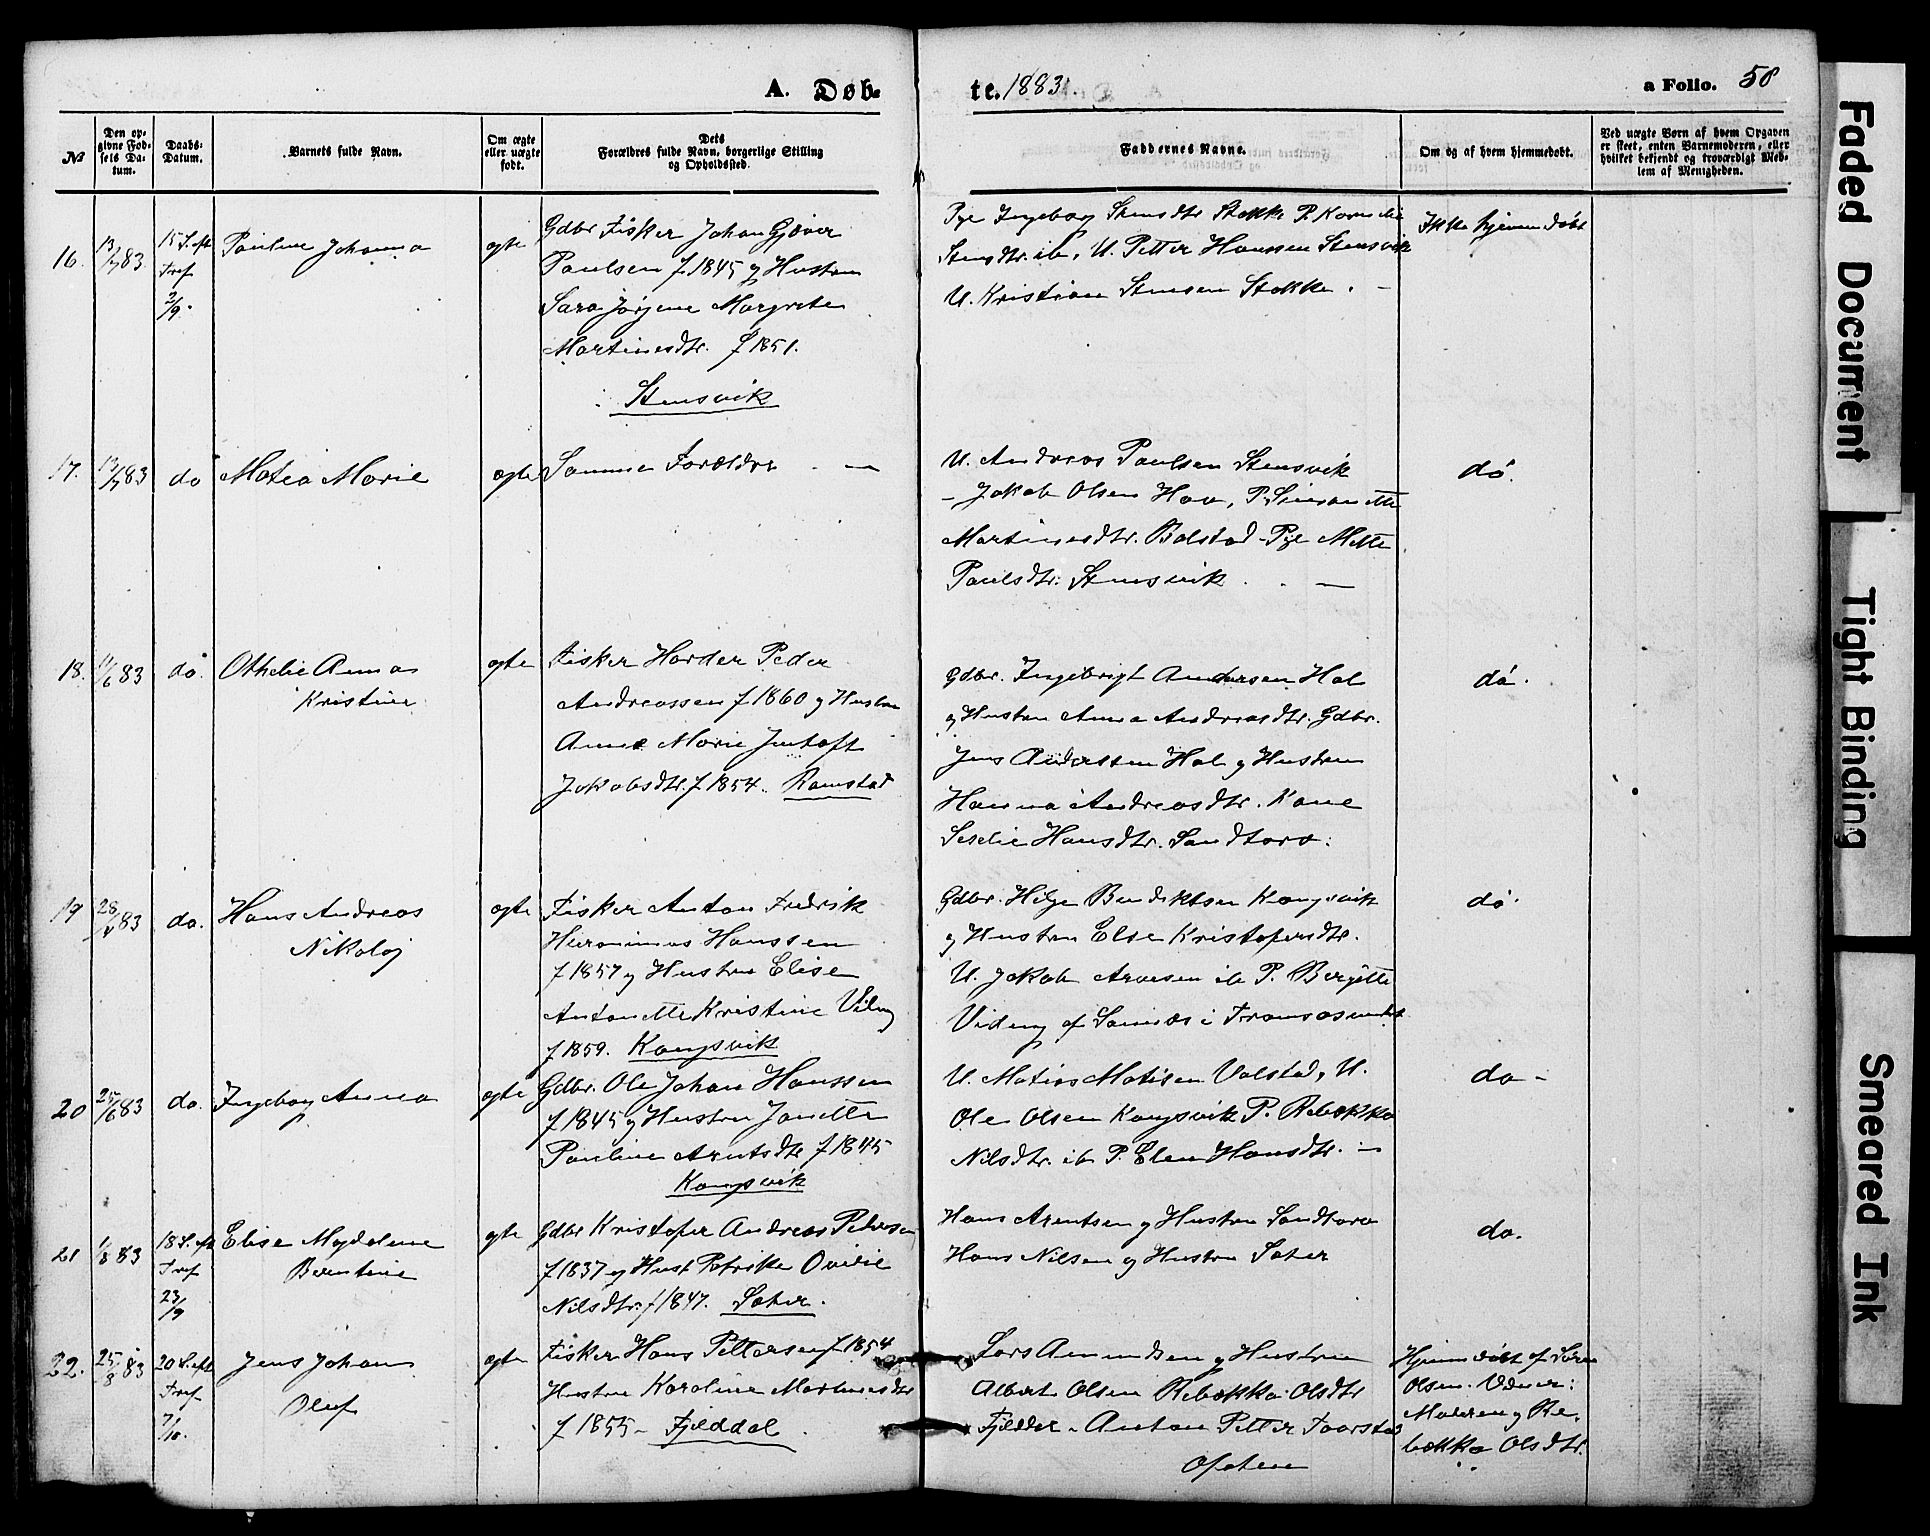 A. Døb-
te. 1883.
a Folio. 58
№
Den op-
givne Fød-
sels Da-
tum.
Daabs-
Datum.
Barnets fulde Navn.
Om ægte
eller uægte
født.
Dets
Forældres fulde Navn, borgerlige Stilling
og Opholdssted.
Faddernes Navne.
Om og af hvem hjemmedøbt.
Ved uægte Børn af hvem Opgaven
er skeet, enten Barnemoderen, eller
hvilket bekjendt og troværdigt Med-
lem af Menigheden.
16.
13/7 83.
15 S. eft
Tref
2/9.
Pauline Johanna
ægte
Gdbr Fisker Johan Gjæver
Paulsen f 1845 og Hustru
Sara Jørgine Margrete
Martinesdtr. f 1851.
Stensvik
Pge Ingeborg Stensdtr Stokke P.
Stensdtr. ib, U. Petter Hanssen Stensvik
U. Kristian Stensen Stokke. –
Ikke hjemmedøbt
17.
13/7 83
do
Matea Marie
ægte
Samme Forældre –
U. Andreas Paulsen Stensvik
– Jakob Olsen Hov, P. Simonette
Martinesdtr. Bolstad – Pge Mette
Paulsdtr. Stensvik. –
do.
18.
11/6 83
do.
Othelie Anna
Kristine
ægte
Fisker Harder Peder
Andreassen f 1860 og Hustru
Anne Marie Jentoft
Jakobsdtr. f 1854. Ramstad
Gdbr. Ingebrigt Andersen Hol
og Hustru Anna Andreasdtr. Gdbr.
Jens Anderssen Hol og Hustru
Hanna Andreasdtr. Kone
Hansdtr. Sandtorv.
do.
19
28/ 83
do.
Hans Andreas
Nikolaj
ægte
Fisker Anton Fredrik
Hieronimus Hanssen
f 1857 og Hustru Elise
Antonette Kristine
f 1859. Kongsvik
Gdbr. Bendiktsen Kongsvik
og Hustru Else Kristofersdtr.
U. Jakob ib P. Bergitte
af Sannæs i
do.
20
25/6 83
do.
Ingeborg Anna
ægte
Gdbr. Ole Johan Hanssen
f 1845 og Hustru Janette
Pauline Arntsdtr f 1845
Kongsvik
U. Matias Matisen Valstad, U.
Ole Olsen Kongsvik P. Rebekka
Nilsdtr. ib P. Elen Hansdtr. –
do –
21
1/8 83
18 S. eft
Tref
23/9
Elise Magdalene
Berntine
ægte
Gdbr Kristofer Andreas Pedersen
f 1837 og Hust Petrike Ovidie
Nilsdtr. f 1847. Sæter.
Hans Arentsen og Hustru Sandtorv
Hans Nilsen og Hustru Sæter
do.
22.
25/8 83
20 S. eft
Tref
7/10
Jens Johan
Oluf
ægte
Fisker Hans Pettersen f 1854
Hustru Karoline Martinesdtr
f 1855 – Fjelddal.
Lars Amundsen og Hustru
Albert Olsen Rebekka Olsdtr
Fjelddal – Anton Petter Taarstad
Ofoten
Hjemmedøbt af Søren
Olsen. Vidner:
Moderen og Re-
bekka Olsdtr.
Faded Document
Tight Binding
Smeared Ink